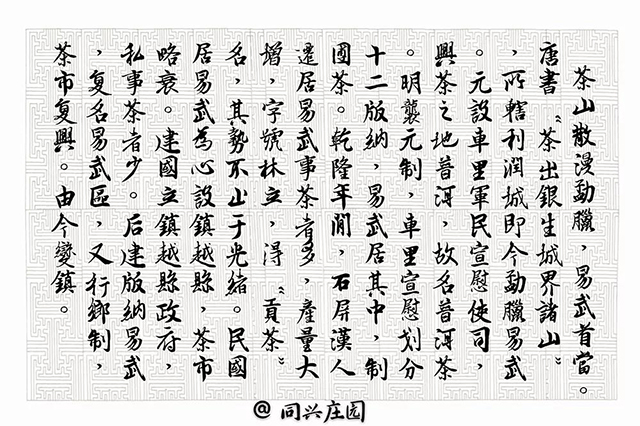 茶山散漫勐臘，易武首當。
唐書〝茶出銀生城界諸山〞
，所轄利潤城即今勐臘易武
。元設車里軍民宣慰使司，
興茶之地普洱，故名普洱茶
。明襲元制，車里宣慰划分
十二版納，易武居其中，制
團茶。乾隆年間，石屏漢人
遷居易武事茶者多，產量大
增，字號林立，淂〝貢茶〞
名，其勢不止于光緒。民國
居易武為心設鎮越縣，茶市
略衰。建國立鎮越縣政府，
私事茶者少。后建版納易武
，复名易武區，又行鄉制，
茶市复興。由今變鎮。
@ 同兴庄园